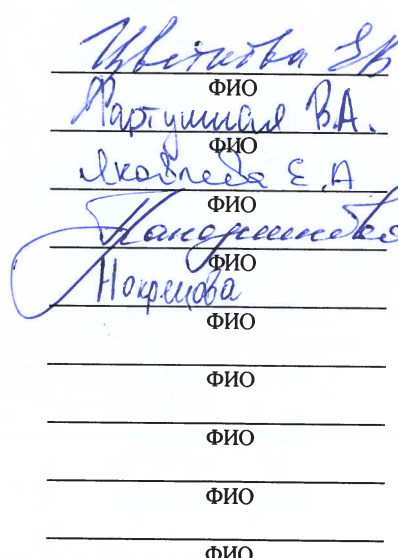 Цветкова ЕВ
ФИО
Фартушная В.А.
ФИО
Яковлева Е.А
ФИО
ФИО
Нокрецова
ФИО
ФИО
ФИО
ФИО
ФИО